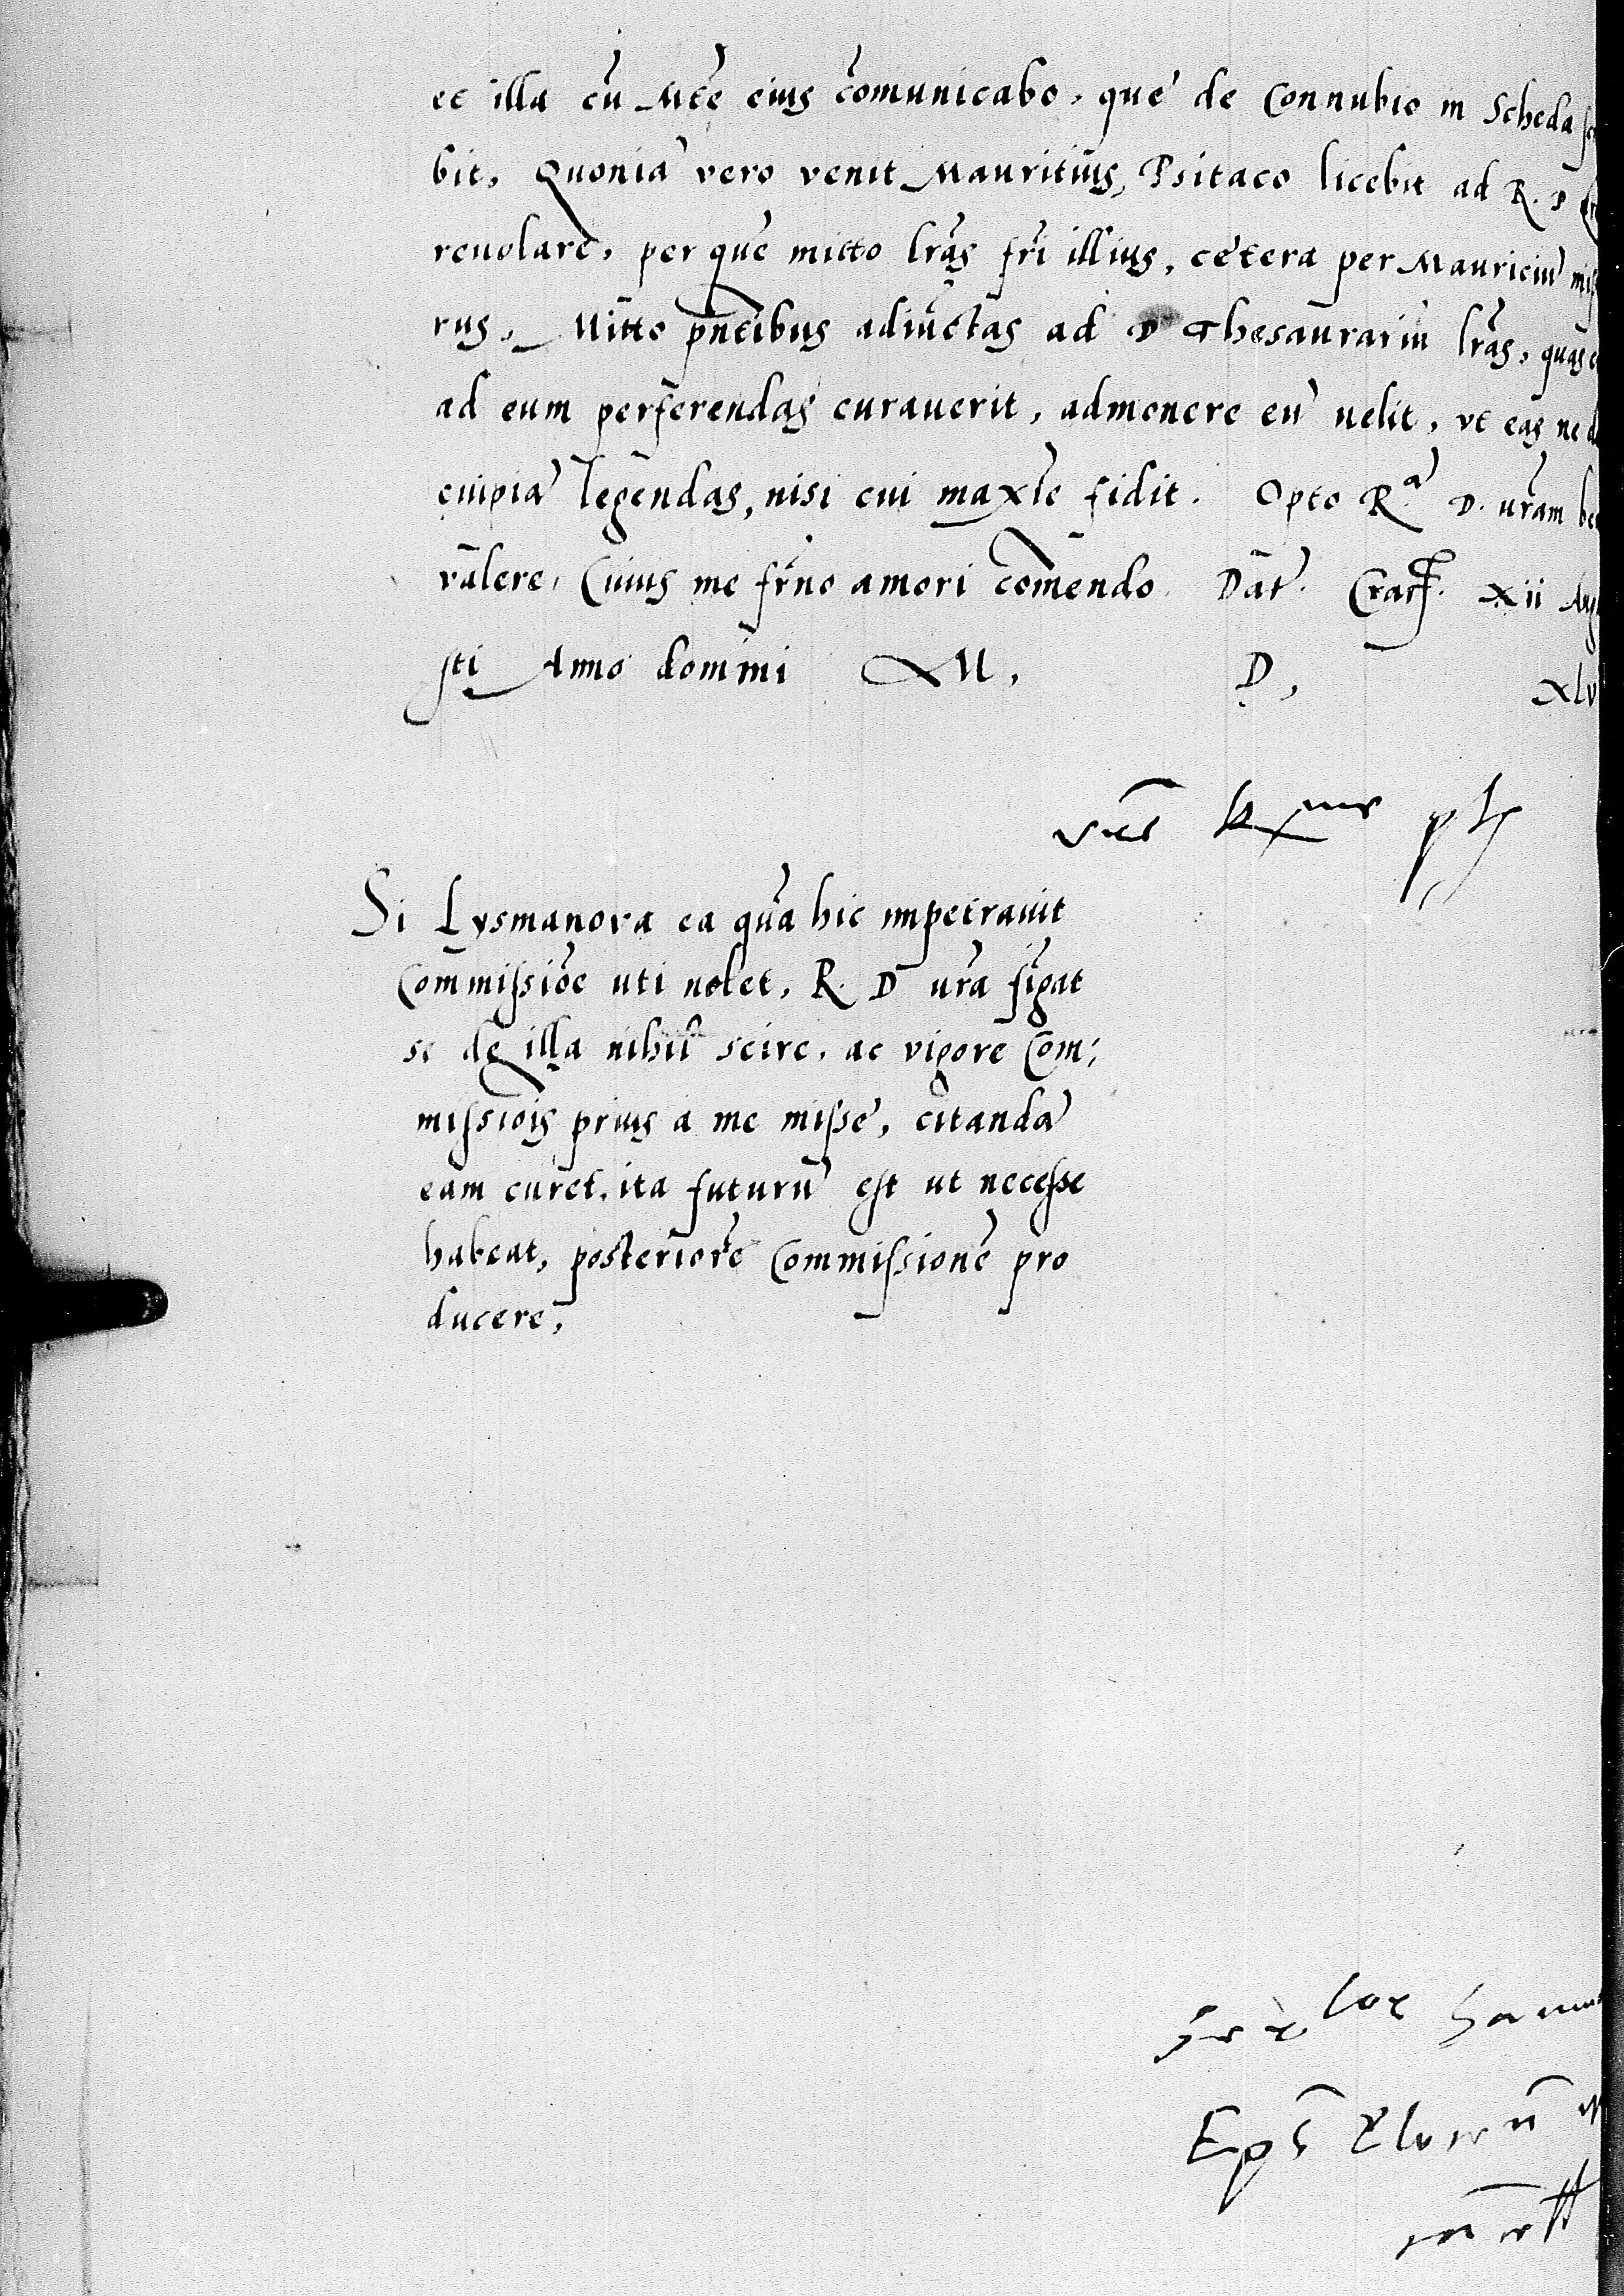 et illa cũ Mte eius cõmunicabo, que de Connubio in Scheda
bit, Quoniã vero venit Mauritius, Psitaco licebit ad R. D
reuolare, per quẽ mitto lr̃as fr̃i illius, cetera per Mauriciũ mis
rus, Mitto pñtibus adiũctas ad D Thesaurariũ lr̃as, quas
ad eum perferendas curauerit, admonere eũ uelit, vt eas ne
cuipiã legendas, nisi cui maxĩe fidit. Opto R.ã D. ur̃am be
valere, Cuius me fr̃no amori com̃endo Dat. Crac. xii Aug
sti Anno domini M. D, xlv
Si Lysmanova ea qua hic impetrauit
Commissiõe uti nolet, R. D ur̃a fĩgat
se de illa nihil scire, ac vigore Com:
missiõis prius a me misse, citandã
eam curet, ita futurũ est ut necesse
habeat, posteriorẽ Commissionẽ pro
ducere,
Eps